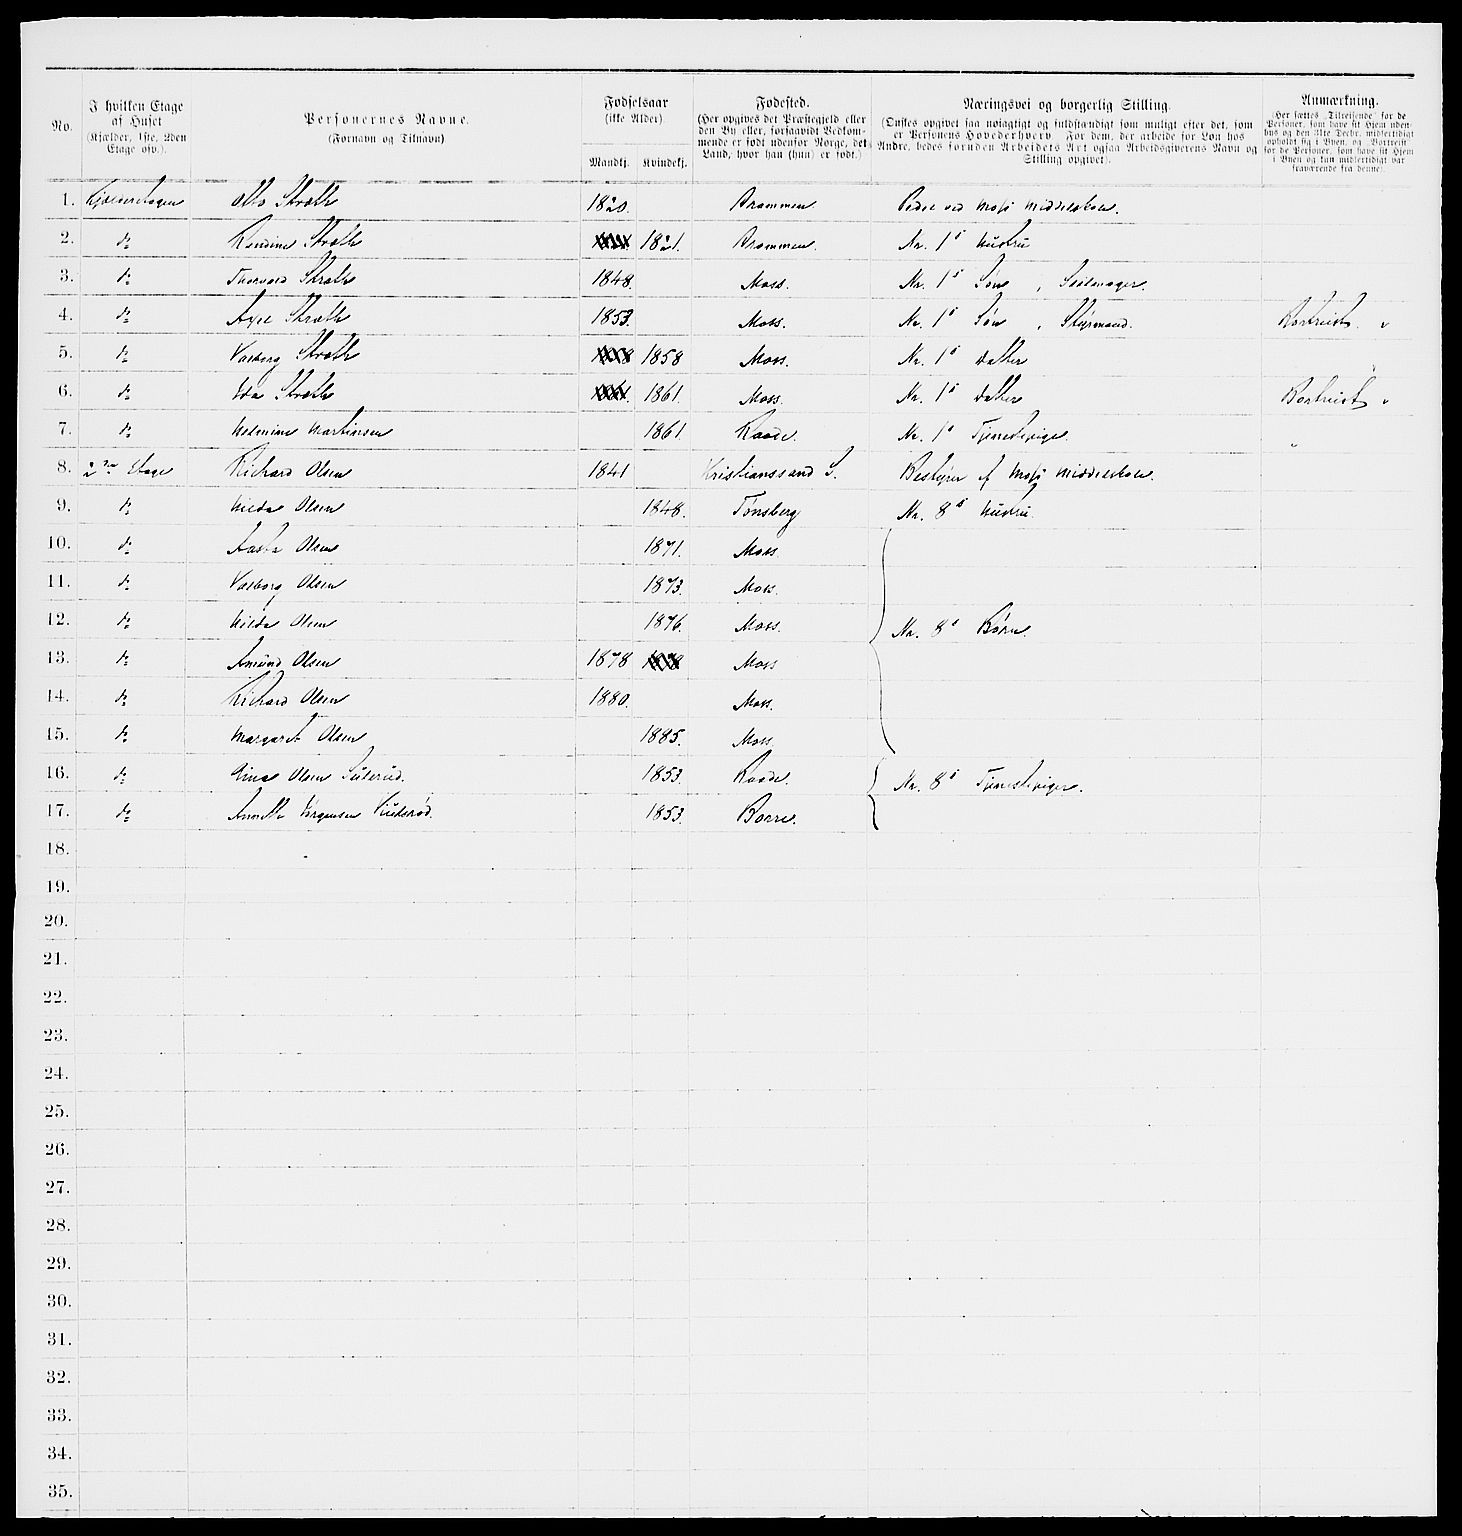 No.
I hvilken Etage af Huset (Kjælder, 1ste, 2den Etage osv.).
Personernes Navne. (Fornavn og Tilnavn)
Fødselsaar (ikke Alder).
Mandkj. Kvindekj.
Fødested. (Her opgives det Præstegjeld eller den By eller, forsaavidt Vedkommende er født udenfor Norge, det Land, hvor han (hun) er født.)
Næringsvei og borgerlig Stilling. (Ønskes opgivet saa nøiagtigt og fuldstændigt som muligt efter det, som er Personens Hovederhverv. For dem, der arbeide for Løn hos Andre, bedes foruden Arbeidets Art ogsaa Arbeidsgiverens Navn og Stilling opgivet).
Anmærkning. (Her sættes „Tilreisende" for de Personer, som have sit Hjem udenbys og den 31te Decbr. midlertidigt opholdt sig i Byen, og „Bortreist" for de Personer, som have sit Hjem i Byen og kun midlertidigt var fraværende fra denne).
1. Kjælderetagen Otto Stræth 1820. Drammen Pedel ved Moss Middelskole.
2. do Randine Stræth 1821. Drammen. Nr. 1s Hustru
3. do Thorvald Stræth 1848. Moss. Nr. 1s Søn, Seilmager.
4. do Axel Stræth 1853. Moss. Nr. 1s Søn, Styrmand. Bortreist. "
5. do Valborg Stræth 1858 Moss. Nr. 1s Datter
6. do Ida Stræth 1861. Moss. Nr. 1s Datter Bortreist "
7. do Helmine Martinsen 1861. Raade. Nr. 1s Tjenestepige. "
8. 2den Etage Richard Olsen 1841 Kristianssand S. Bestyrer af Moss Middelskole.
9. do Hilda Olsen 1848. Tønsberg Nr. 8s Hustru.
10. do Aasta Olsen 1871. Moss.
11. do Valborg Olsen 1873. Moss.
12. do Hilda Olsen 1876. Moss. Nr. 8s Børn.
13. do Amund Olsen 1878 Moss
14. do Richard Olsen 1880. Moss.
15. do Margaret Olsen 1885. Moss
16. do Olsen 1853. Raade. Nr. 8s Tjenestepiger.
17. do Annette Jørgensen 1853. Borre.
18.
19.
20.
21.
22.
23.
24.
25.
26.
27.
28.
29.
30.
31.
32.
33.
34.
35.